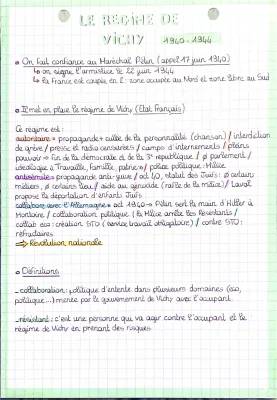 LE REGIME DE
VICHY 1940-1944
• On fait confiance au Maréchal Pétain (appel 17 juin 1940)
↳ on signe l'armistice le 22 juin 1944
↳ la France est coupée en 2 : zone occupée au Nord et zone libre au Sud
• Il met en place le régime de Vichy (Etat Français)
Ce régime est :
autoritaire • propagande + culte de la personnalité (chanson) / interdiction
de grève / presse et radio censurées / camps d'internements / pleins
pouvoir → fin de la démocratie et de la 3e république / Ø parlement /
idéologie : Travaille, Famille, patrie / police politique : Milice
antisémite • propagande anti-juive / oct 40, statut des Juifs : Ø certains
métiers, Ø certains lieu / aide au génocide (rafle de la milice) / Laval
propose la déportation d'enfants Juifs
collabore avec l'Allemagne • oct 1940 → Pétain sert la main d'Hitler à
Montoire / collaboration politique (la Milice arrête les Résistants) /
collab éco : création STO (service travail obligatoire) / contre STO :
réfractaires
⇒ Révolution nationale
• Définitions
_ collaboration : politique d'entente dans plusieurs domaines (éco,
politique...) menée par le gouvernement de Vichy avec l'occupant.
_ résistant : c'est une personne qui va agir contre l'occupant et le
régime de Vichy en prenant des risques